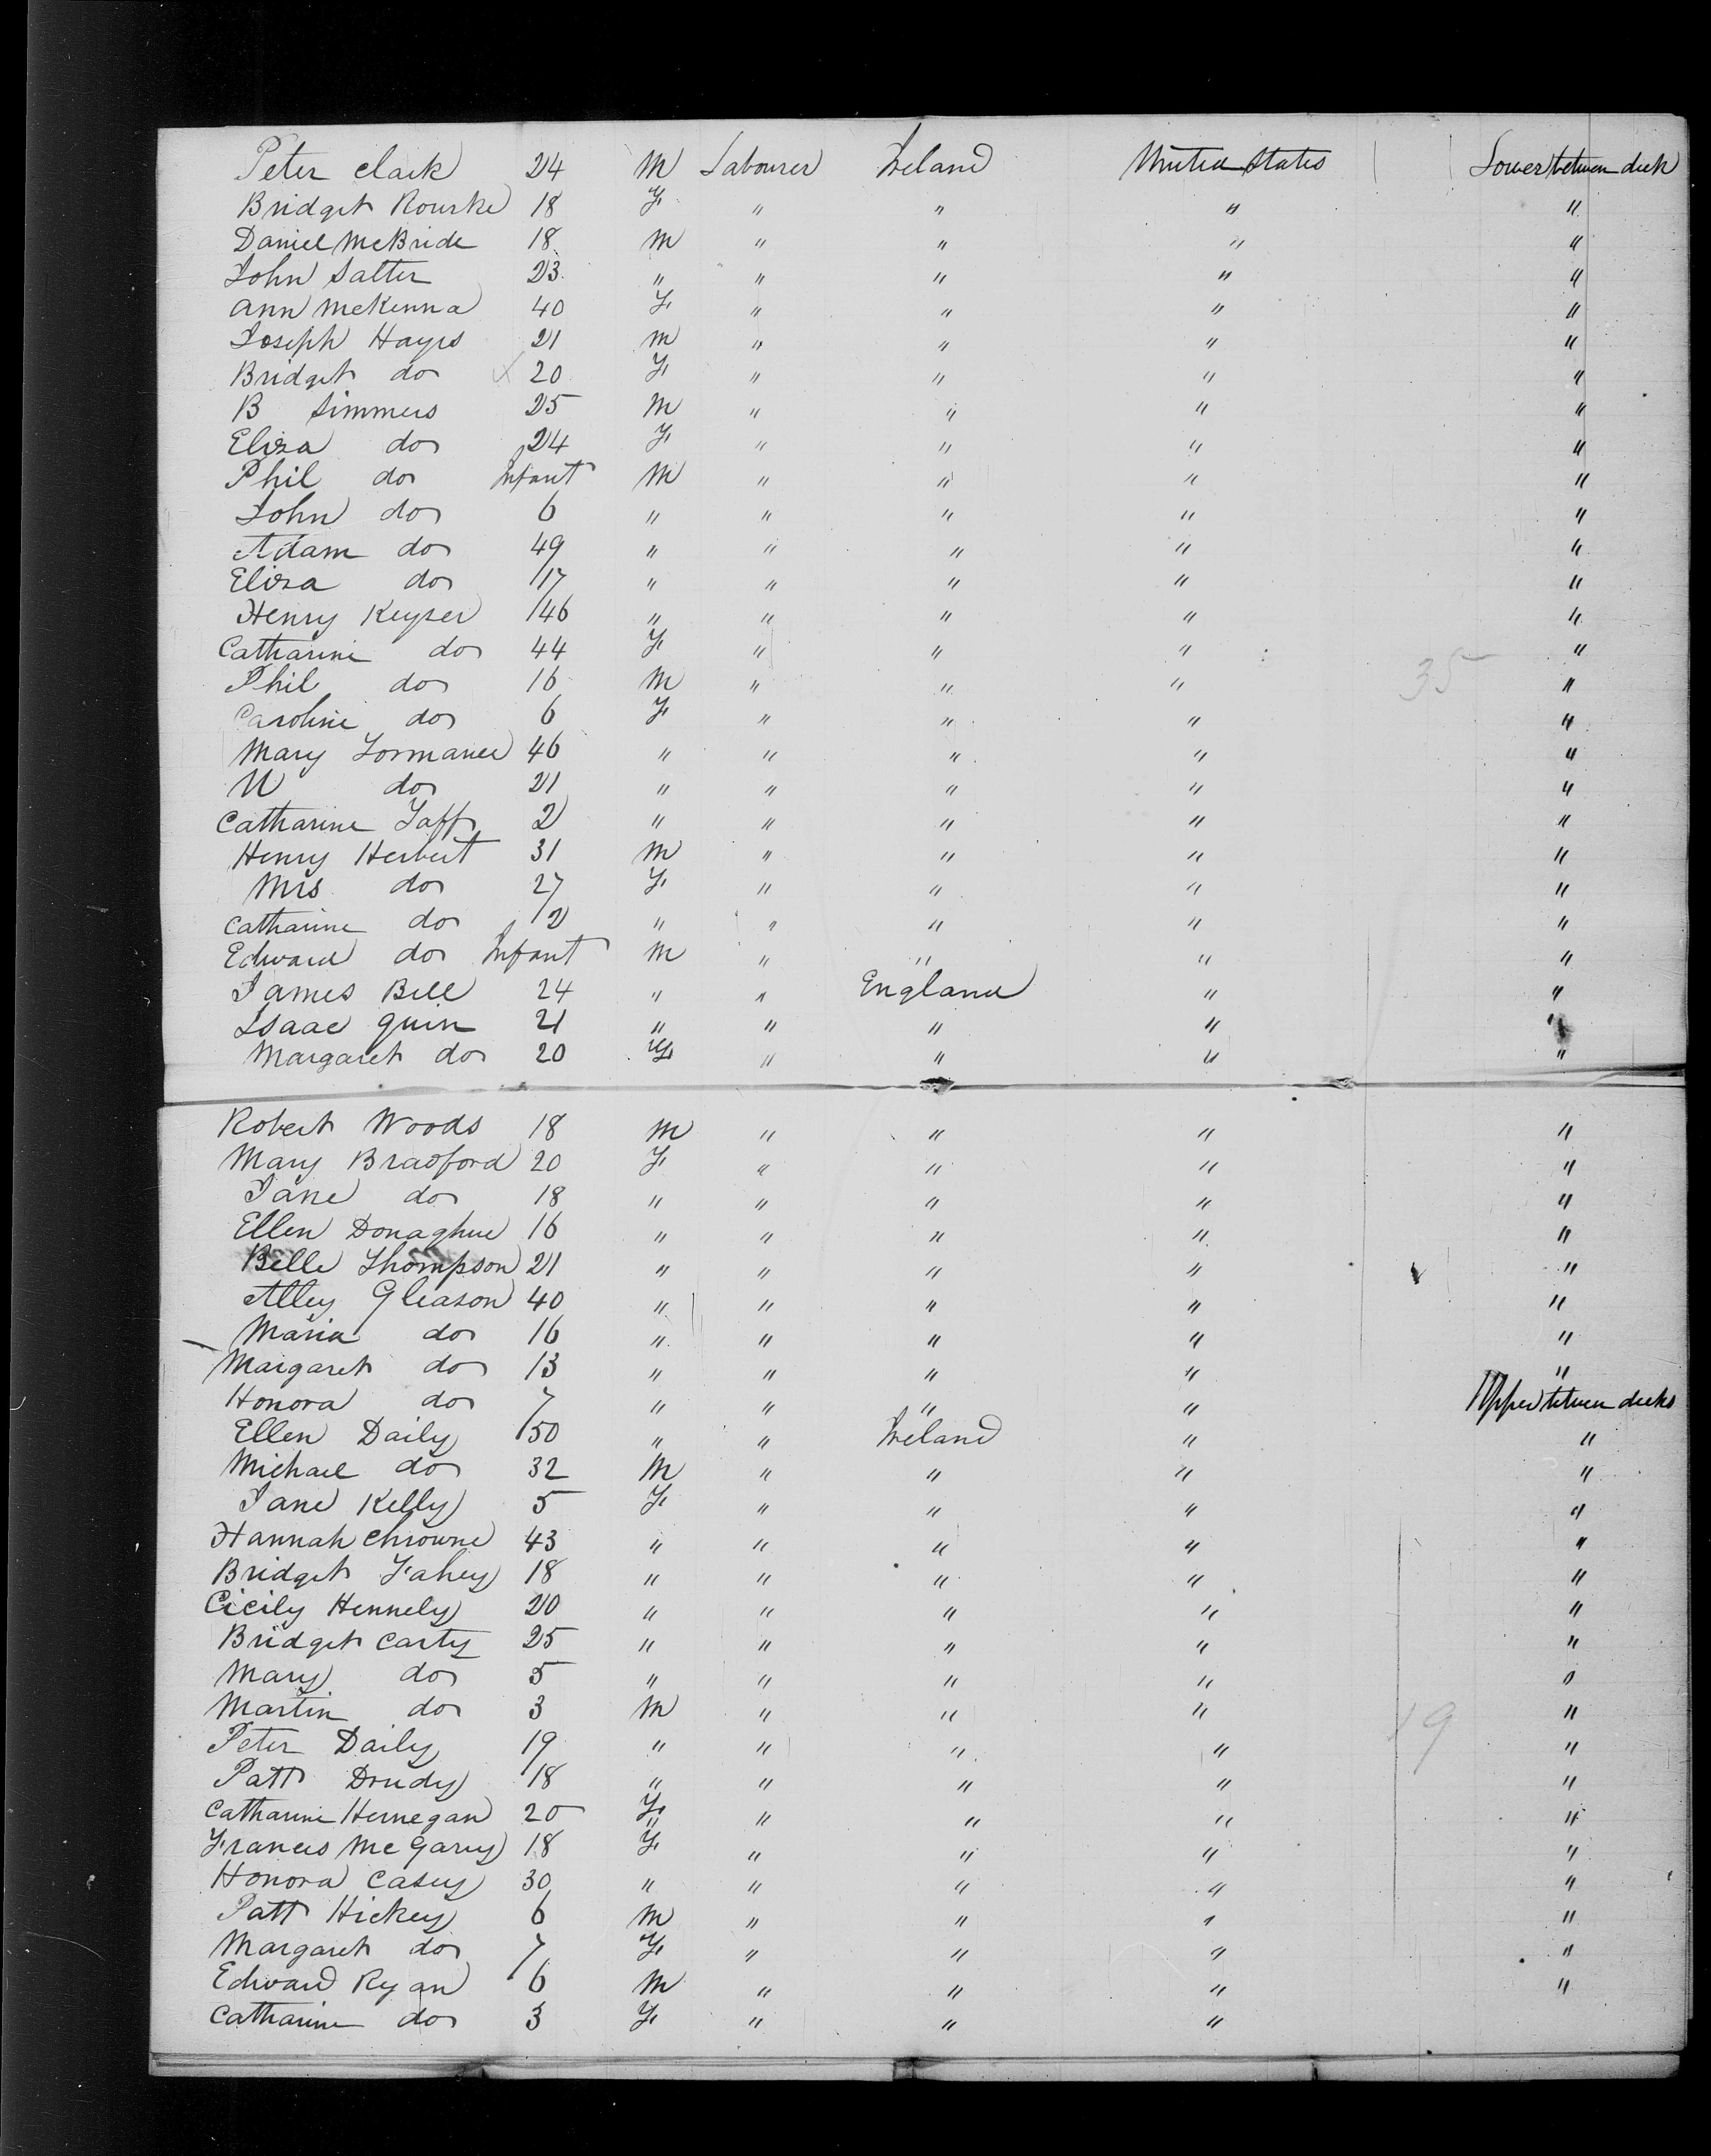 Peter Clark 24 M Labourer Ireland United States Lower between deck
Bridget Rourke 18 F " " " "
Daniel McBride 18 M " " " "
John Salter 23 " " " " "
Ann McKenna 40 F " " " "
Joseph Hayes 21 M " " " "
Bridget do 20 F " " " "
B Simmers 25 M " " " "
Eliza do 24 F " " " "
Phil do Infant M " " " "
John do 6 " " " " "
Adam do 49 " " " " "
Eliza do 17 " " " " "
Henry Keyser 46 " " " " "
Catharine do 44 F " " " "
Phil do 16 M " " " 35 "
Caroline do 6 F " " " "
Mary 46 " " " " "
W do 21 " " " " "
Catharine Taff 2 " " " " "
Henry Herbert 31 M " " " "
Mrs do 27 F " " " "
Catharine do 2 " " " " "
Edward do Infant M " " " "
James Bell 24 " " England " "
Isaac Quin 21 " " " " "
Margaret do 20 F " " " "
Robert Woods 18 M " " " "
Mary Bradford 20 F " " " "
Jane do 18 " " " " "
Ellen Donaghue 16 " " " " "
Belle Thompson 21 " " " " "
Alley Gleason 40 " " " " "
Maria do 16 " " " " "
Margaret do 13 " " " " "
Honora do 7 " " " " Upper between decks
Ellen Daily 50 " " Ireland " "
Michael do 32 M " " " "
Jane Kelly 5 F " " " "
Hannah Chrowne 43 " " " " "
Bridget Fahey 18 " " " " "
Cicily Hennely 20 " " " " "
Bridget Carty 25 " " " " "
Mary do 5 " " " " "
Martin do 3 M " " " 19 "
Peter Daily 19 " " " " "
Patt Drudy 18 " " " " "
Catharine Hernegan 20 F " " " "
Frances McGarry 18 F " " " "
Honora Casey 30 " " " " "
Patt Hickey 6 M " " " "
Margaret do 7 F " " " "
Edward Ryan 6 M " " " "
Catharine do 3 F " " "